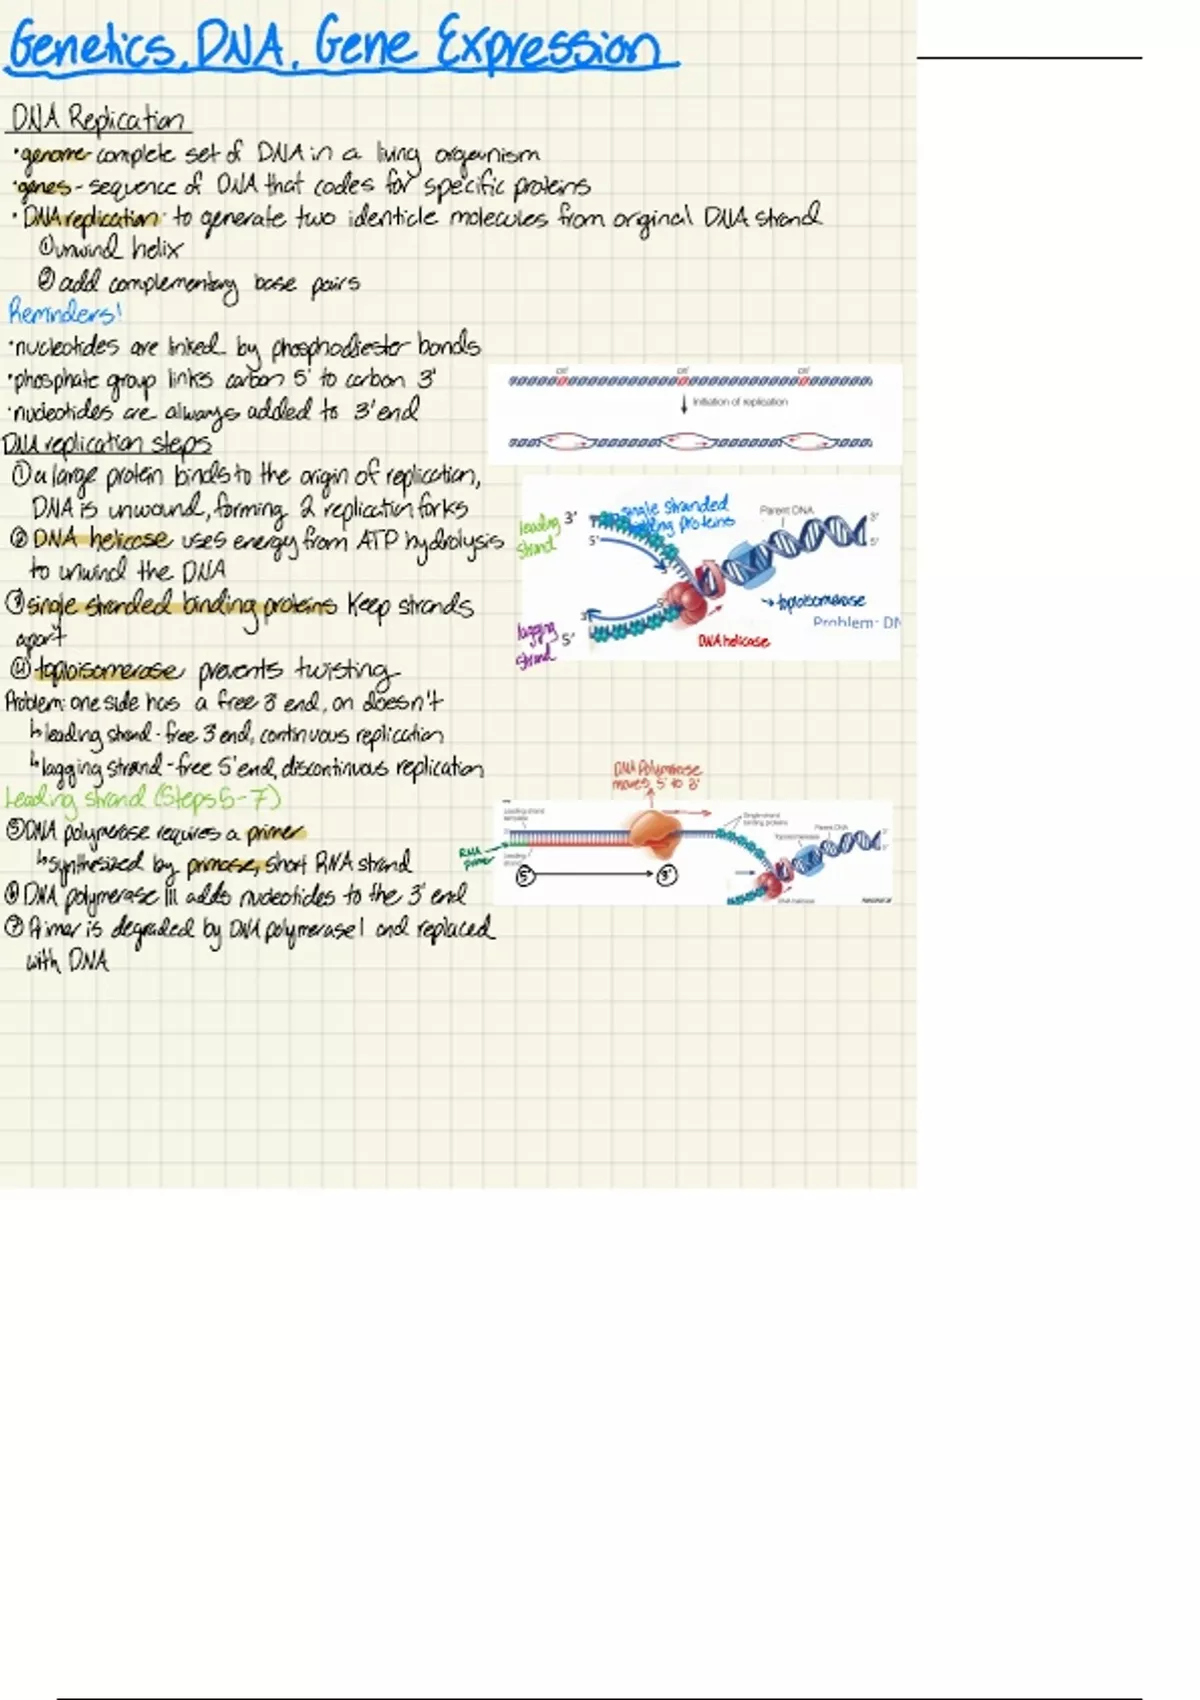 Genetics, DNA, Gene Expression
DNA Replication
·genome-complete set of DNA in a living organism
·genes-sequence of DNA that codes for specific proteins
·DNA replication: to generate two identicle molecules from original DNA strand
①unwind helix
②add complementary base pairs
Reminders!
·nucleotides are linked by phosphodiester bonds
·phosphate group links carbon 5' to carbon 3'
·nucleotides are always added to 3' end
DNA replication steps
①a large protein binds to the origin of replication,
DNA is unwound, forming 2 replication forks
②DNA helicase uses energy from ATP hydrolysis
to unwind the DNA
③single stranded binding proteins keep strands
apart
④topioisomerase prevents twisting
Problem: one side has a free 3' end, on doesn't
↳leading strand-free 3' end, continuous replication
↳lagging strand-free 5' end, discontinuous replication
Leading strand (Steps 5-7)
⑤DNA polymerase requires a primer
↳synthesized by primase, short RNA strand
⑥DNA polymerase III adds nucleotides to the 3' end
⑦Primer is degraded by DNA polymerase I and replaced
with DNA
ori ori ori
Initiation of replication
leading
strand
3'
5'
single stranded
proteins
Parent DNA
3'
5'
topioisomerase
Problem: DN
lagging
strand
3'
5'
5'
DNA helicase
DNA Polymerase
moves 5' to 3'
Leading strand
template
RNA
primer
Leading
strand
5' 3'
Single-strand
binding proteins
Topoisomerase
Parent DNA
3'
5'
DNA helicase